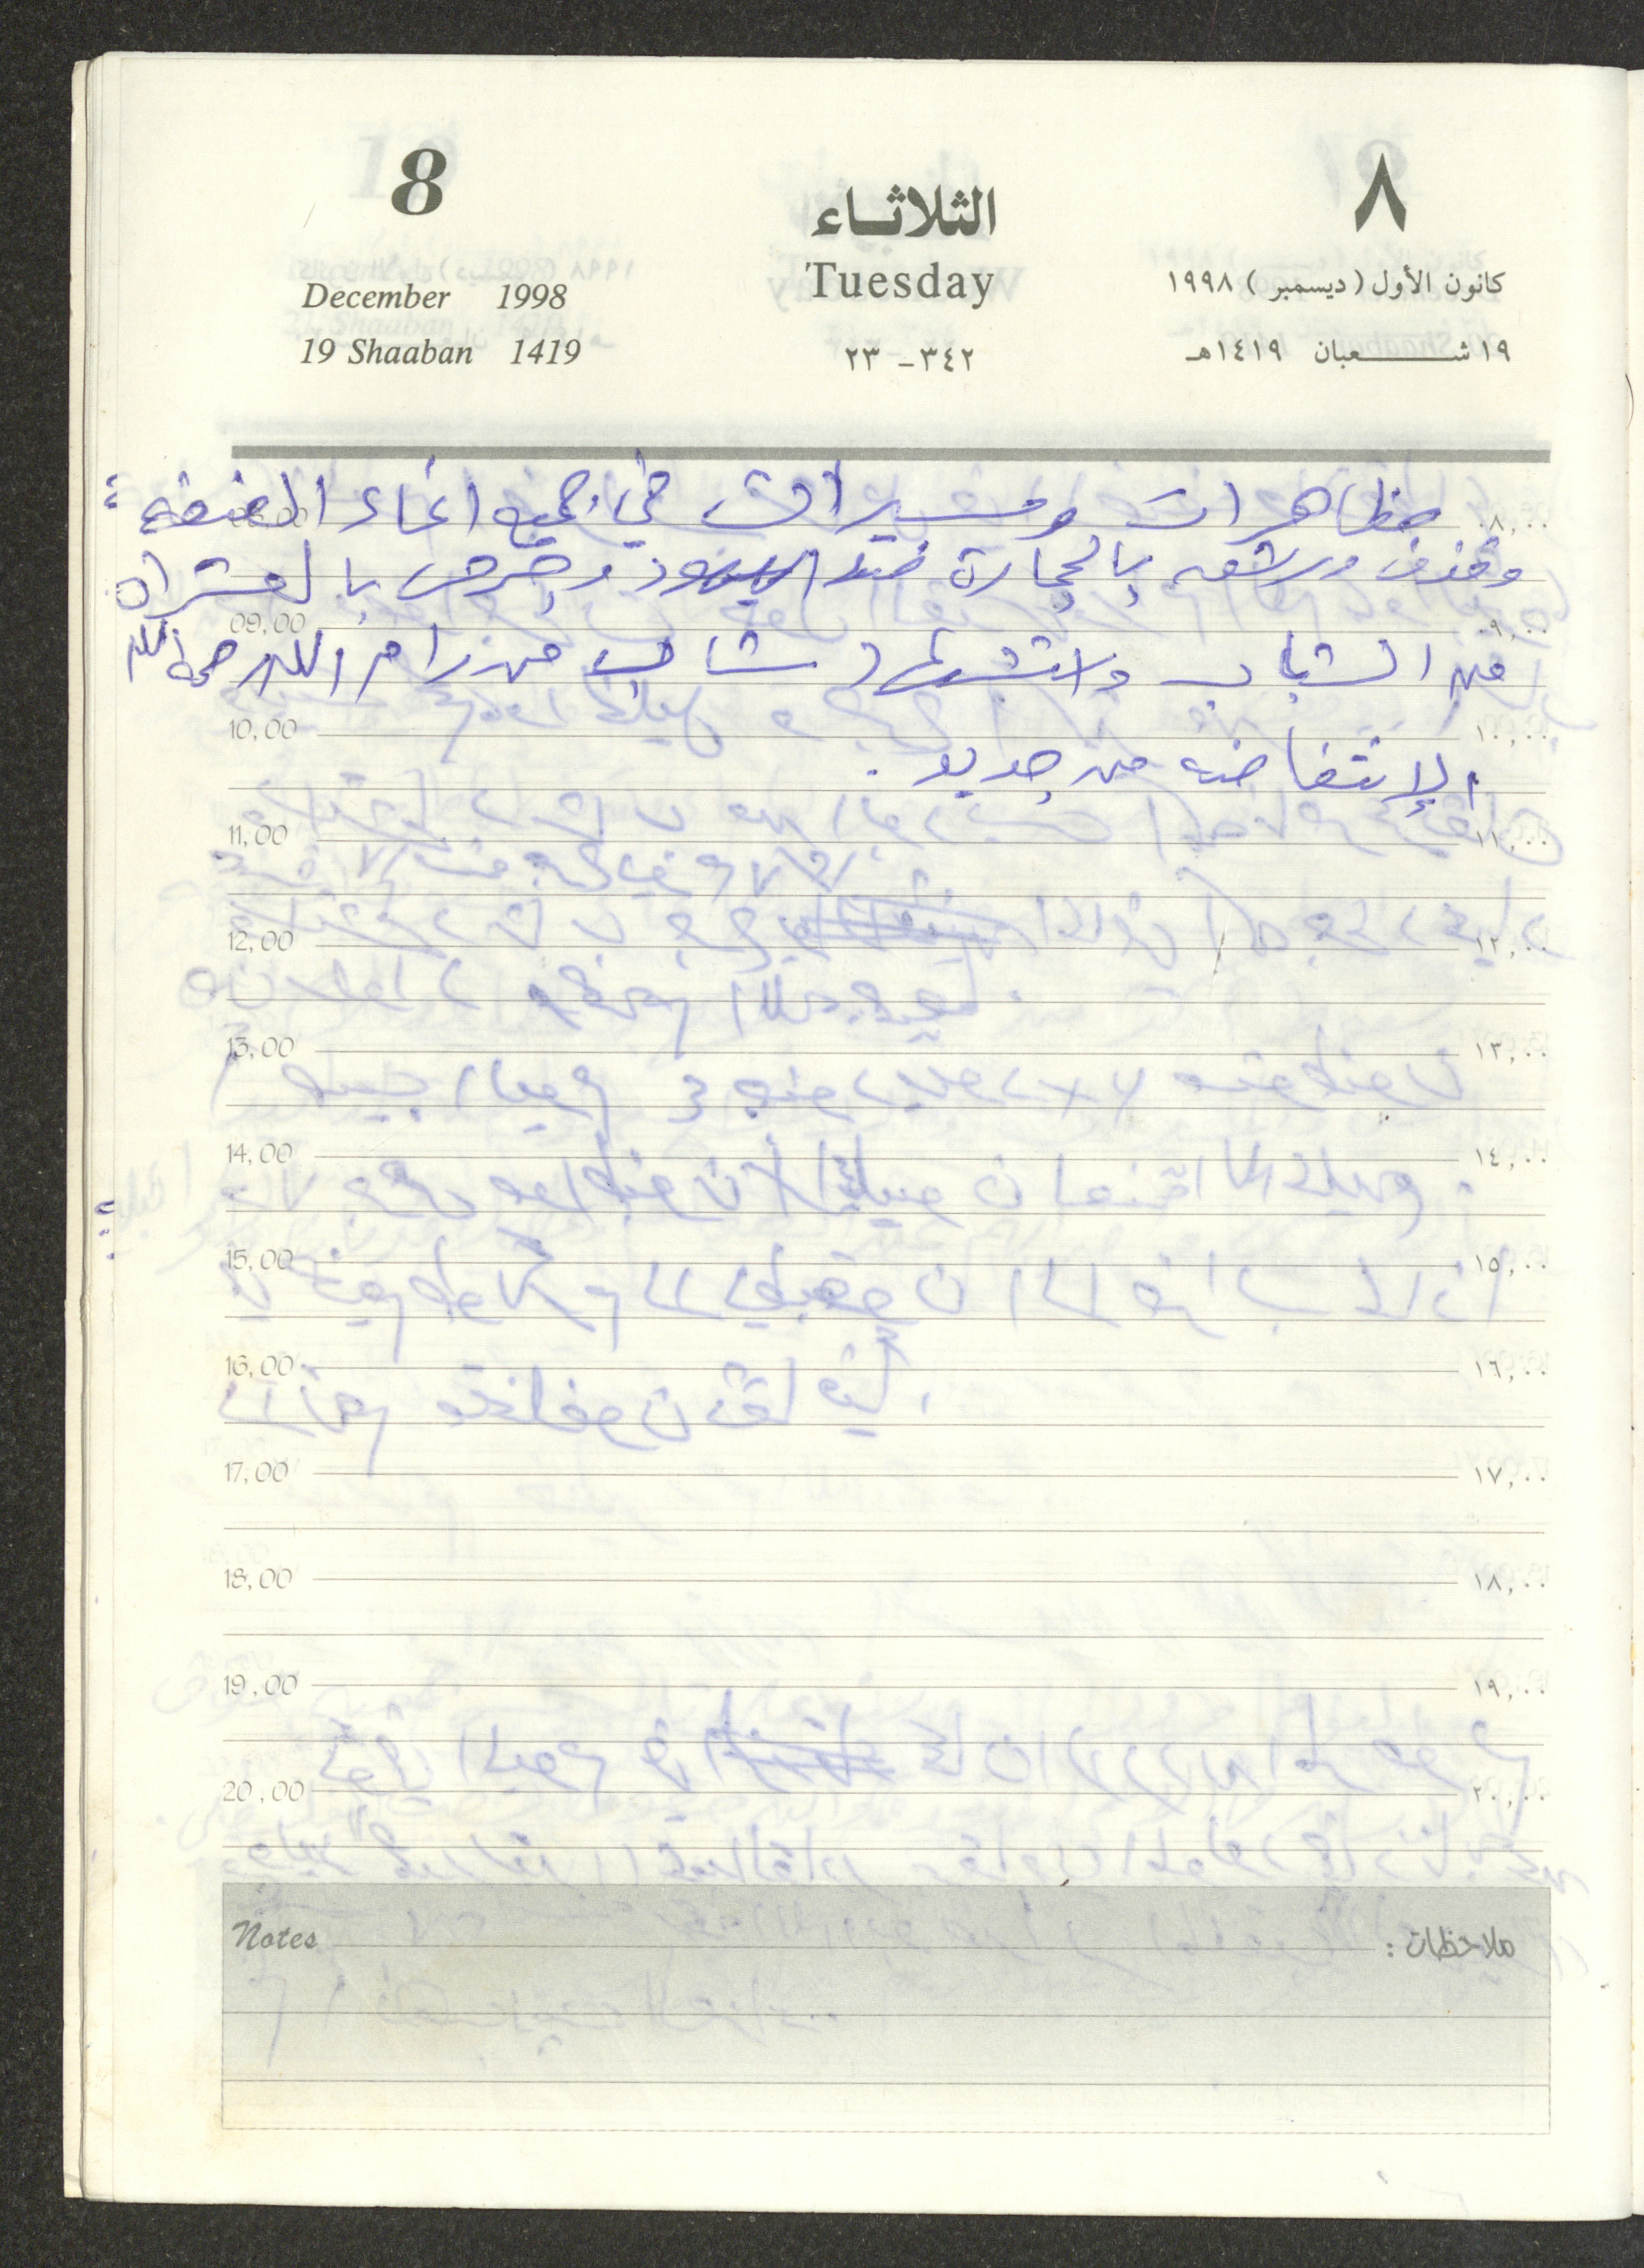 8 الثلاثاء ٨
Tuesday
December 1998 كانون الأول (ديسمبر) ١٩٩٨
19 Shaaban 1419 ٣٤٢ - ٢٣ ١٩ شعبان ١٤١٩هـ
مظاهرات ومسيرات في جميع انحاء الضفه :
08,00 ٠٨,٠٠
وقذف ورشقه بالحجارة ضد اليهود وجرحى بالعشرات
09,00 ٠٩,٠٠
من الشباب واستشهاد شاب من رام الله رحمه الله
10,00 ١٠,٠٠
الإنتفاضه من جديد .
11,00 ١١,٠٠
12,00 ١٢,٠٠
13,00 ١٣,٠٠
14,00 ١٤,٠٠
15,00 ١٥,٠٠
16,00 ١٦,٠٠
17,00 ١٧,٠٠
18,00 ١٨,٠٠
19,00 ١٩,٠٠
20,00 ٢٠,٠٠
Notes ملاحظات :